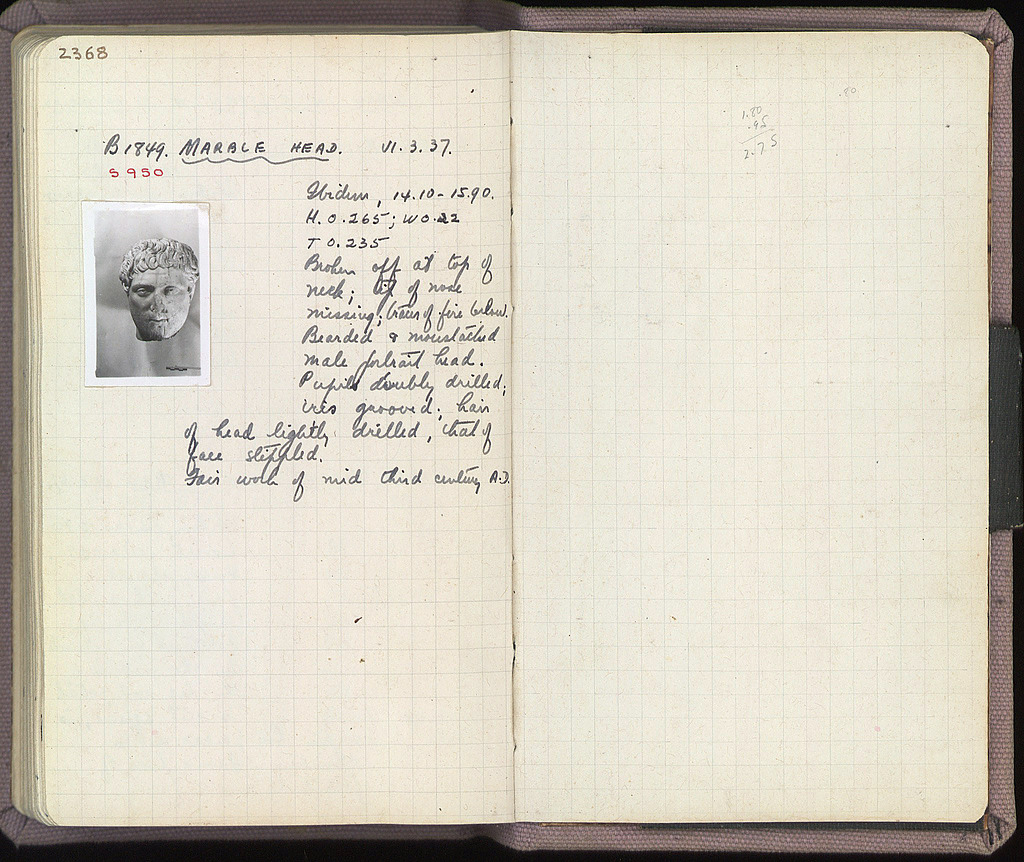 2368
B 1849. MARBLE HEAD. VI. 3. 37.
S 950
Ibidem, 14.10-15.90.
H. 0.265; W 0.22
T 0.235
Broken off at top of
neck; tip of nose
missing; traces of fire below.
Bearded & moustached
male portrait head.
Pupils doubly drilled;
iris grooved; hair
of head lightly drilled, that of
face stippled.
Fair work of mid third century A.D.
.80
1.80
.95
2.75